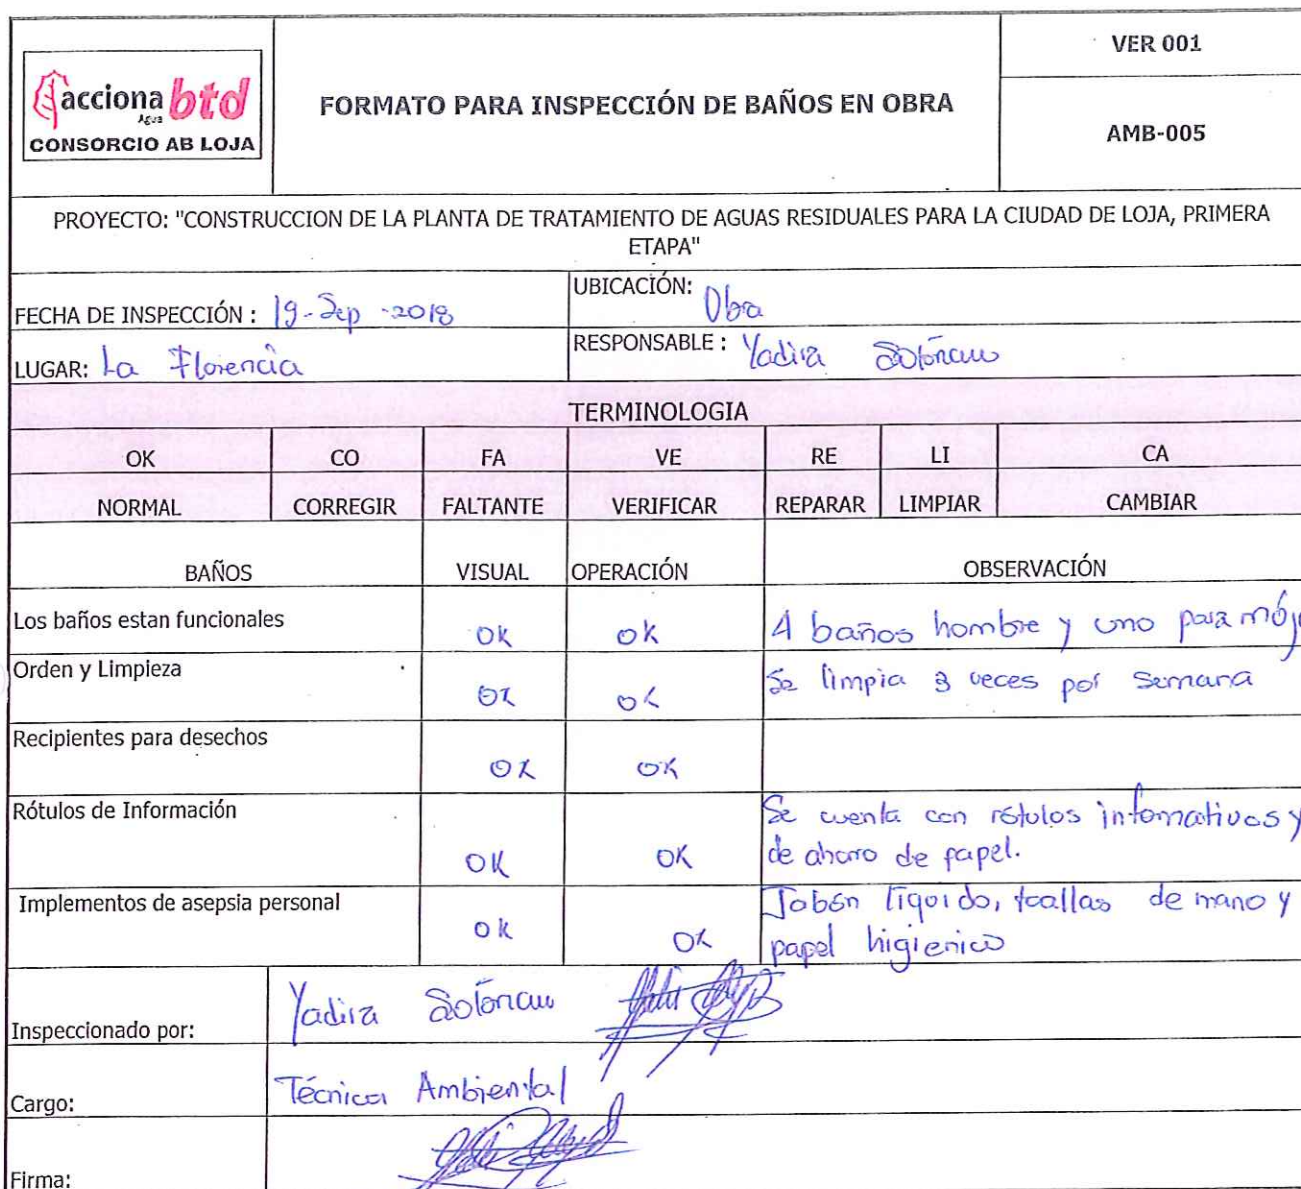 acciona btd
Agua
CONSORCIO AB LOJA
FORMATO PARA INSPECCIÓN DE BAÑOS EN OBRA
VER 001
AMB-005
PROYECTO: "CONSTRUCCION DE LA PLANTA DE TRATAMIENTO DE AGUAS RESIDUALES PARA LA CIUDAD DE LOJA, PRIMERA
ETAPA"
FECHA DE INSPECCIÓN : 19-Sep-2018 UBICACIÓN: Obra
LUGAR: La Florencia RESPONSABLE : Yadira
TERMINOLOGIA
OK CO FA VE RE LI CA
NORMAL CORREGIR FALTANTE VERIFICAR REPARAR LIMPIAR CAMBIAR
BAÑOS VISUAL OPERACIÓN OBSERVACIÓN
Los baños estan funcionales OK OK baños hombre y uno para
Orden y Limpieza OK OK Se limpia 3 veces por semana
Recipientes para desechos OK OK
Rótulos de Información OK OK Se cuenta con rótulos informativos y
de ahorro de papel.
Implementos de asepsia personal OK OK Jabón líquido, toallas de mano y
papel higienico
Inspeccionado por: Yadira
Cargo: Técnica Ambiental
Firma: